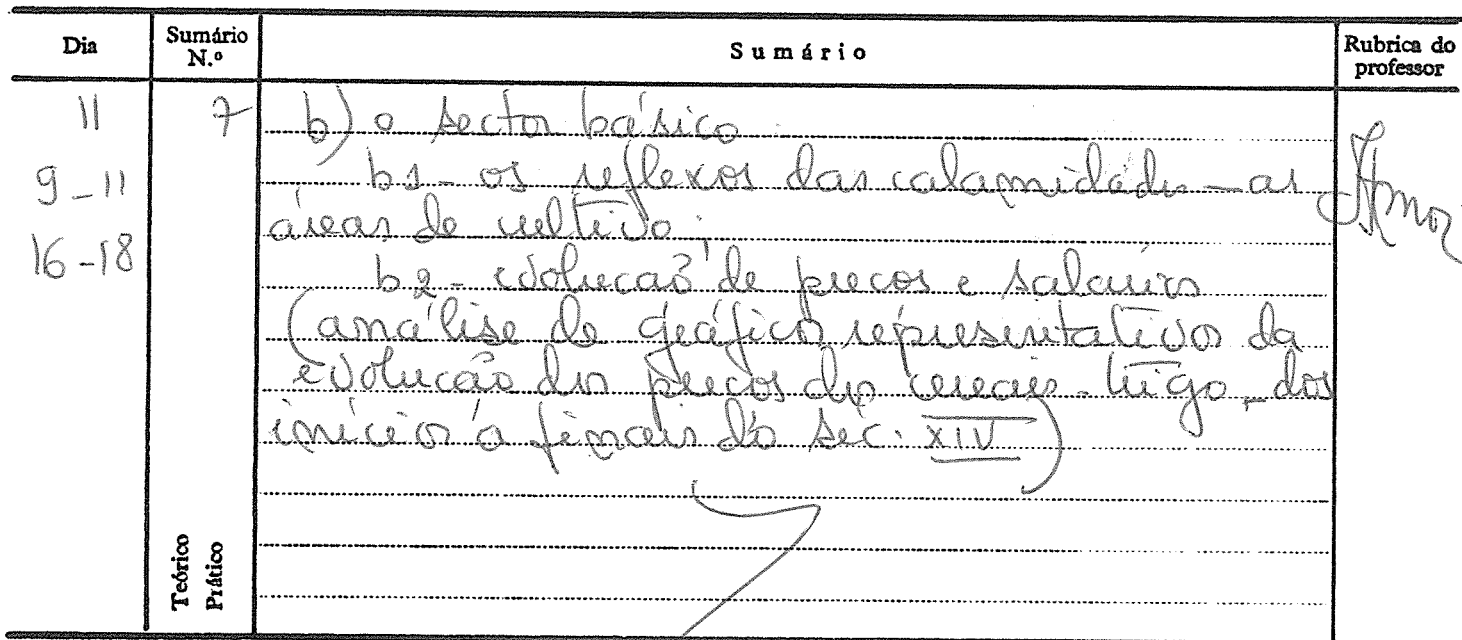 Dia
Sumário N.º
Sumário
Rubrica do professor
11
7
b) o sector básico.
9-11
b1- os reflexos das calamidades - as
áreas de cultivo.
16-18
b2- evolução de preços e salários
(análise de gráficos representativos da
evolução dos preços dos cereais - trigo - dos
inícios a finais do séc. XIV)
Teórico
Prático